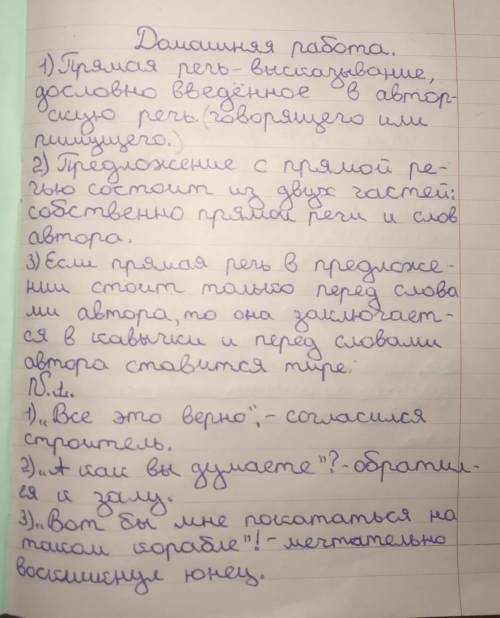 Домашняя работа.
1) Прямая речь - высказывание,
дословно введённое в автор-
скую речь. (говорящего или
пишущего.)
2) Предложение с прямой ре-
чью состоит из двух частей:
собственно прямой речи и слов
автора.
3) Если прямая речь в предложе-
нии стоит только перед слова
ми автора, то она заключает-
ся в кавычки и перед словами
автора ставится тире.
№1.
1) „Все это верно", - согласился
строитель.
2) „А как вы думаете"? - обратил-
ся к залу.
3) „Вот бы мне покататься на
таком корабле"! - мечтательно
воскликнул юнец.